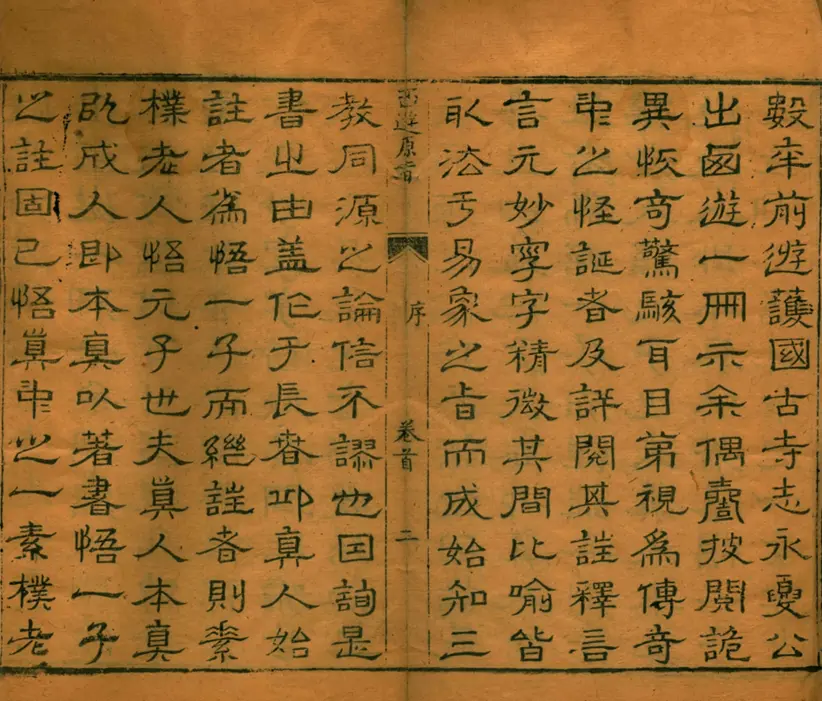 數秊前遊護國古寺志永公
出西遊一冊示余偶披閱詭
異恢奇驚駭耳目第視爲傳奇
中之怪誕者及詳閱其註釋言
言元妙字字精微其間比喻皆
取法乎易象之旨而成始知三
西遊原旨
序
卷首
二
教同源之論信不謬也因詢是
書之由蓋作于長春邱真人始
註者爲悟一子而繼註者則素
樸老人悟元子也夫真人本真
成人即本真以著書悟一子
之註固已悟真中之一素樸老